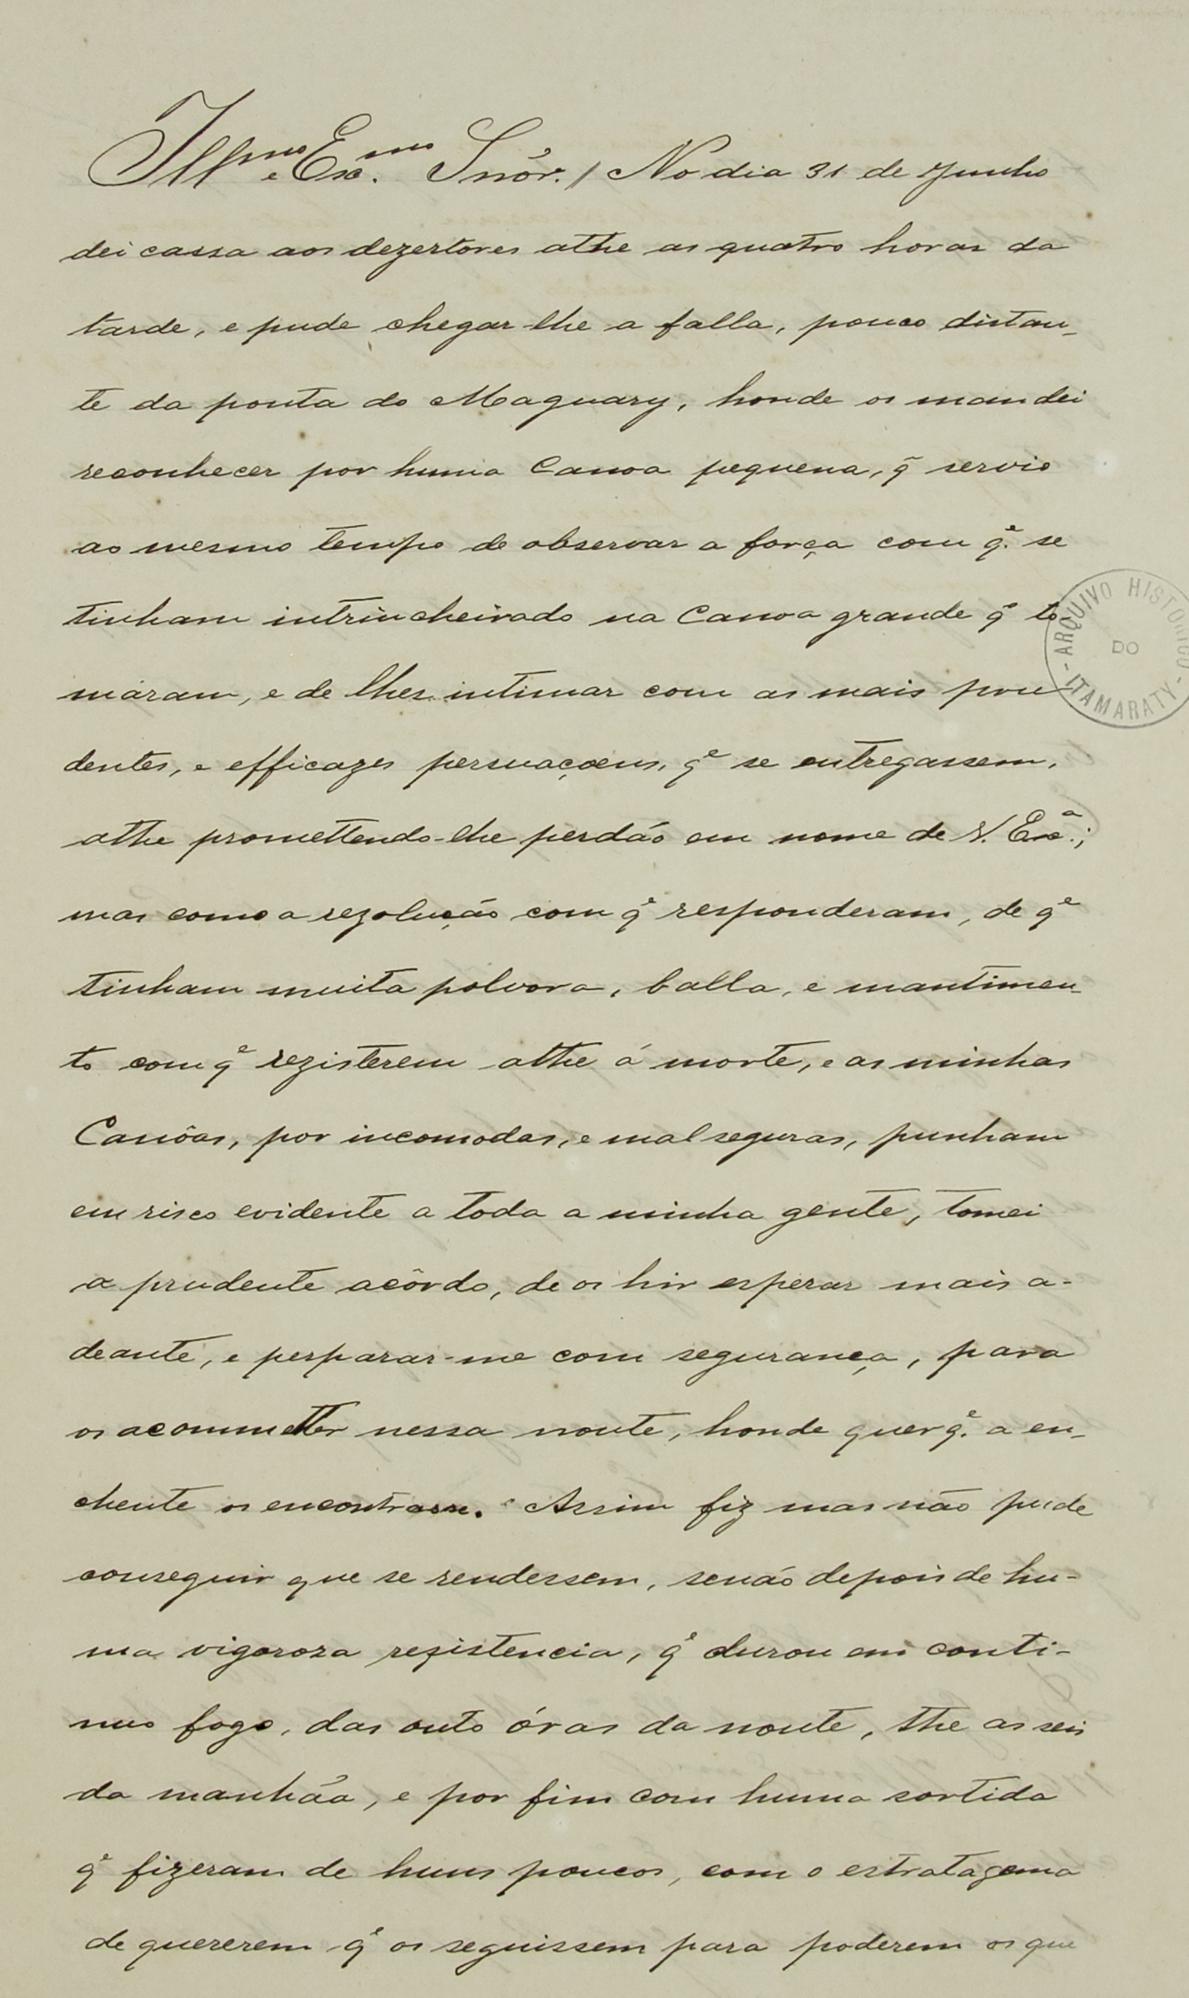 Ill.mo e Exc.mo Snôr./ No dia 31 de Junho
dei cassa aos dezertores athe as quatro horas da
tarde, e pude chegar-lhe a falla, pouco distan-
te da ponta do Maguary, honde os mandei
reconhecer por huma Canoa pequena, q̃ servio
ao mesmo tempo de observar a força com q.e se
tinham intrincheirado na Canoa grande q.e to
máram, e de lhes intimar com as mais pru
dentes, e efficazes persuaçoens, q.e se entregassem,
athe promettendo-lhe perdão em nome de V. Exc.a;
mas como a rezolução com q.e responderam, de q.e
tinham muita polvora, balla, e mantimen-
to com q.e rezisterem athe á morte, e as minhas
Canôas, por incomodas, e mal seguras, punham
em risco evidente a toda a minha gente, tomei
o prudente acôrdo, de os hir esperar mais a-
deante, e perparar-me com segurança, para
os acommetter nessa noute, honde quer q.e a en-
chente os encontrasse. Assim fiz mas não pude
conseguir que se rendessem, senão depois de hu-
ma vigoroza rezistencia, q.e durou em conti-
nuo fogo, das outo óras da noute, the as seis
da manhãa, e por fim com huma sortida
q.e fizeram de huns poucos, com o estratagema
de quererem q.e os seguissem para poderem os que
ARQUIVO HISTORICO
DO
ITAMARATY